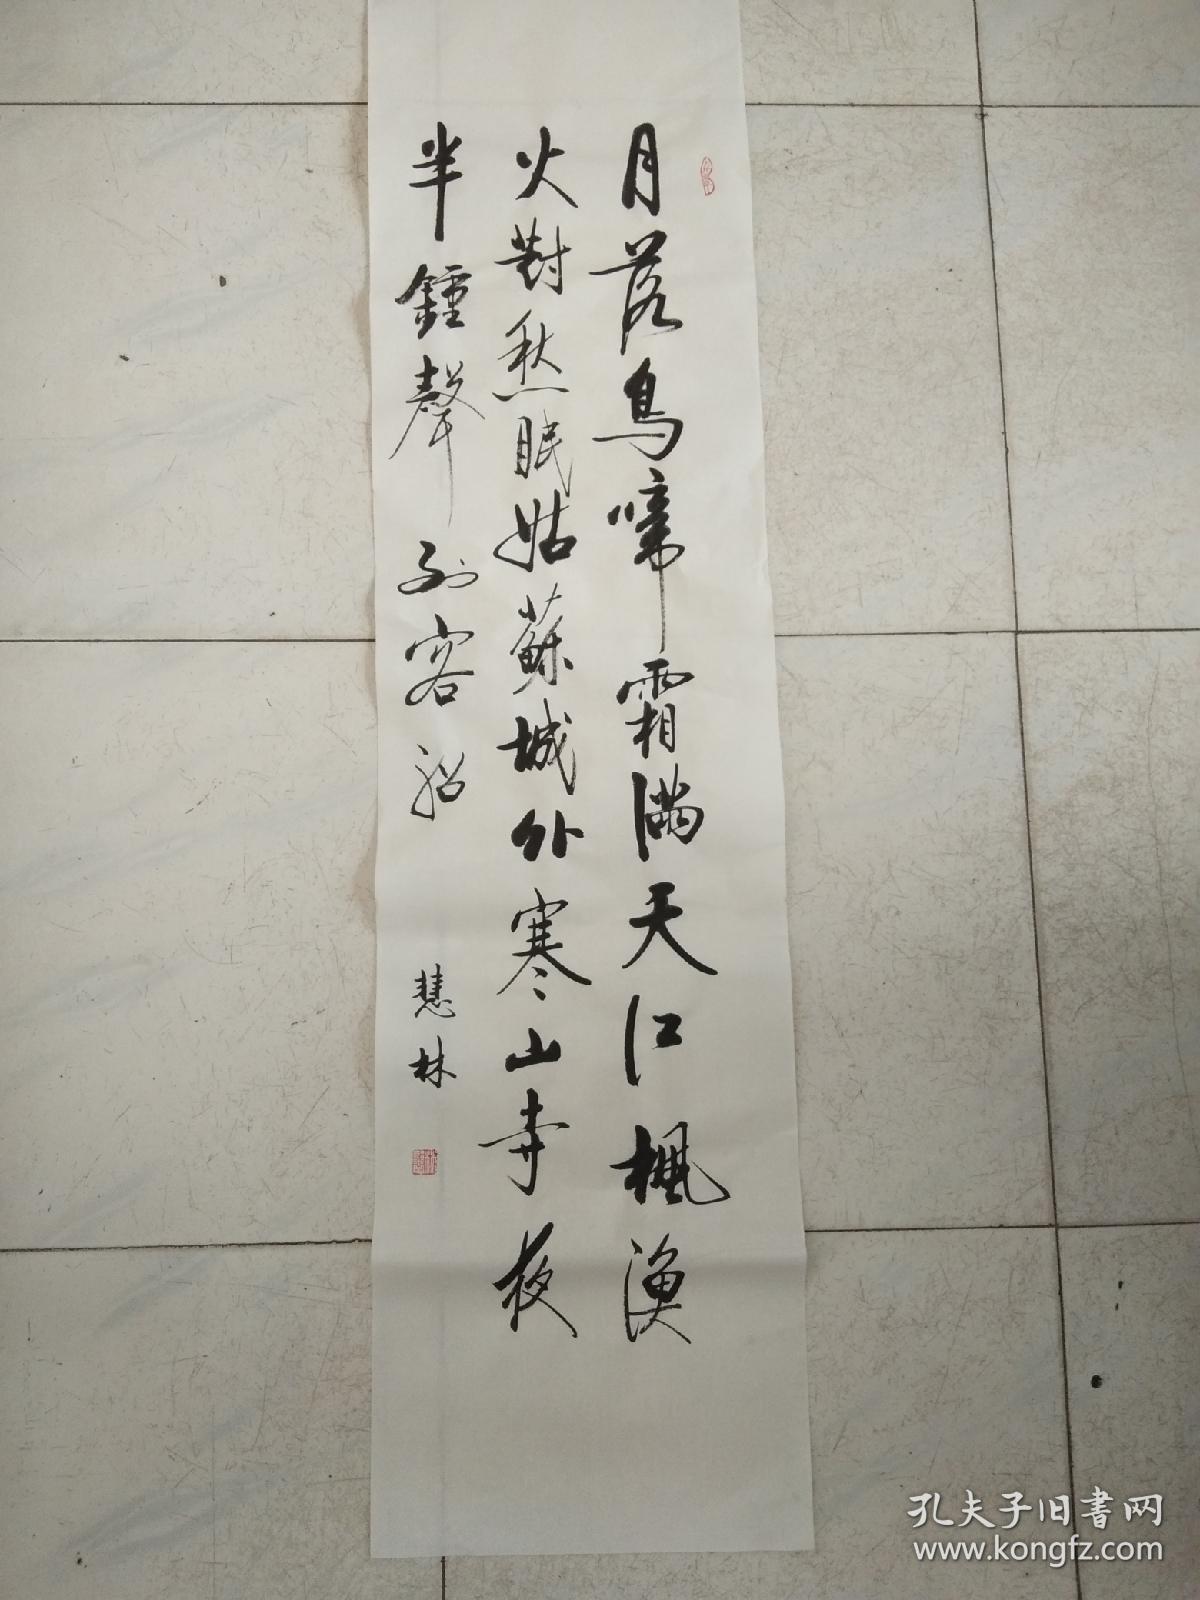 月落烏啼霜滿天江楓漁
火對愁眠姑蘇城外寒山寺夜
半鍾聲到客船
慧林
孔夫子旧书网
www.kongfz.com